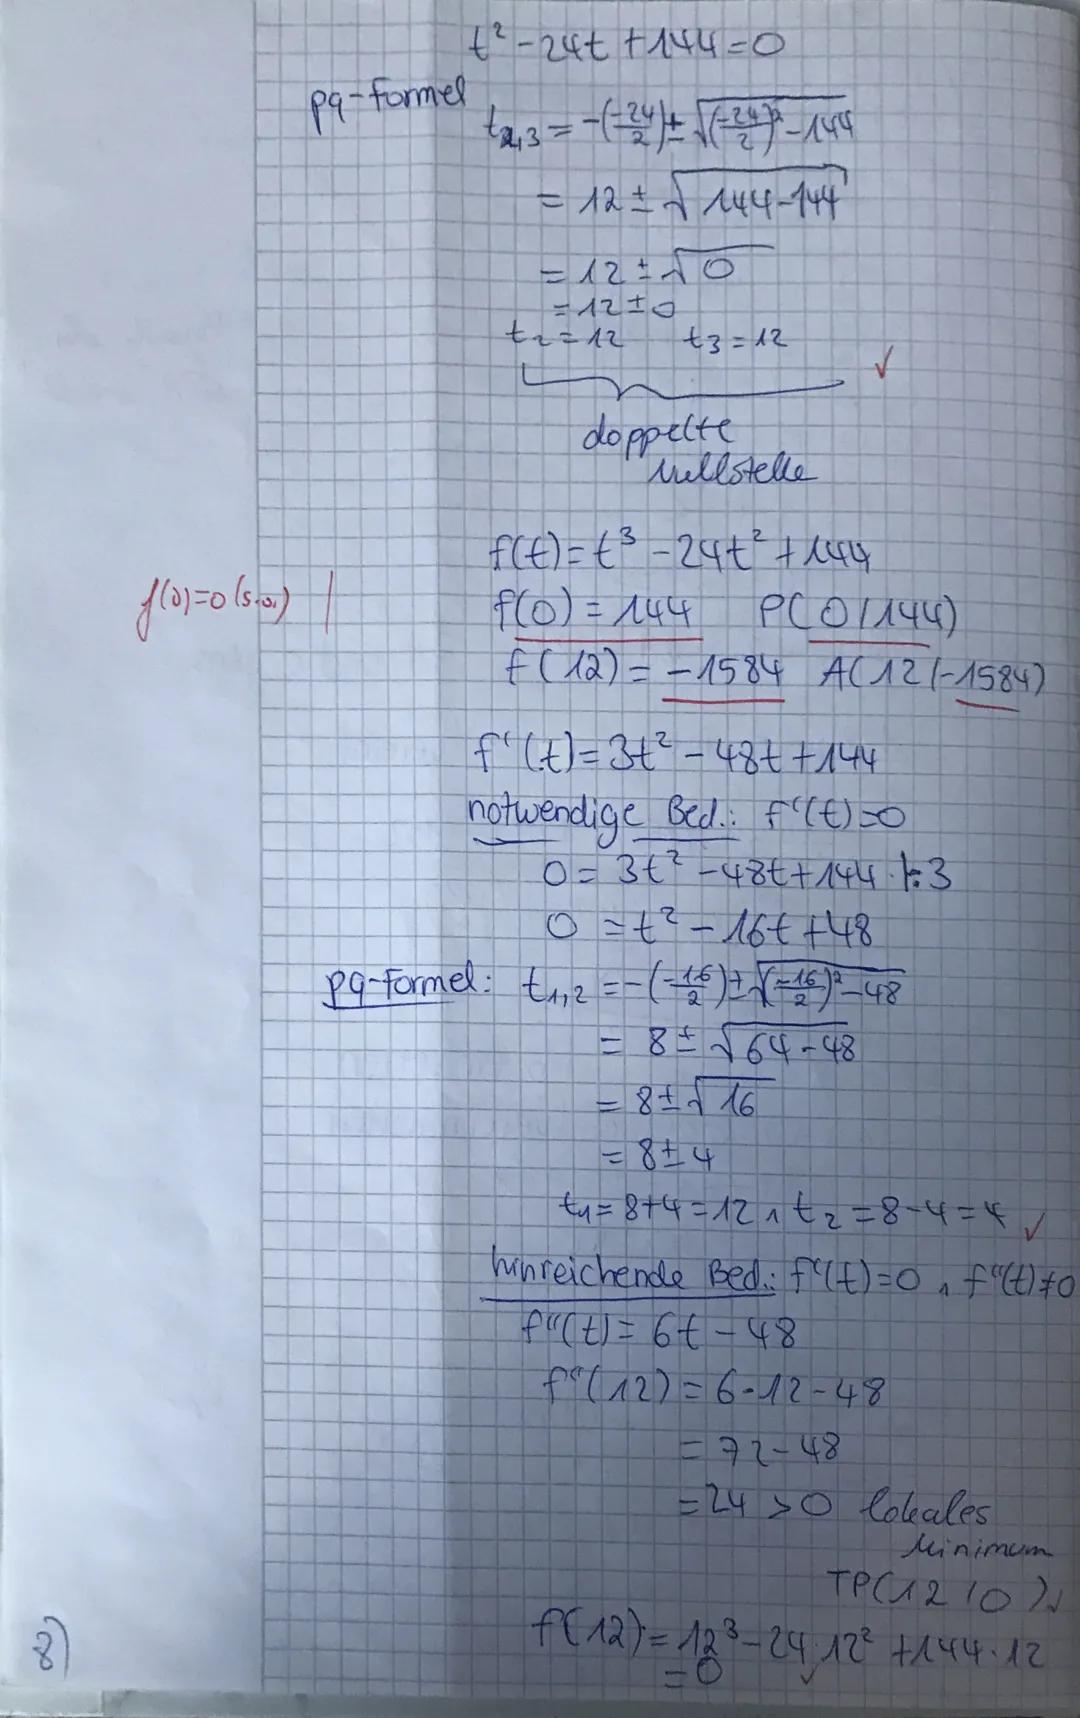 t² - 24t + 144 = 0
pq-Formel t2,3 = -(-24/2) ± √((-24/2)² - 144)
= 12 ± √(144-144)
= 12 ± √0
= 12 ± 0
t2 = 12 t3 = 12 ✓
doppelte
Nullstelle
f(t) = t³ - 24t² + 144
f(0)=0 (s.o.) | f(0) = 144 P(0/144)
f(12) = -1584 A(12/-1584)
f'(t) = 3t² - 48t + 144
notwendige Bed.: f'(t)=0
0 = 3t² - 48t + 144 |:3
0 = t² - 16t + 48
pq-Formel: t1,2 = -(-16/2) ± √((-16/2)² - 48)
= 8 ± √(64-48)
= 8 ± √16
= 8 ± 4
t1 = 8+4 = 12 ∧ t2 = 8-4 = 4 ✓
hinreichende Bed.: f'(t)=0 ∧ f''(t)≠0
f''(t) = 6t - 48
f''(12) = 6·12-48
= 72-48
= 24 > 0 lokales
Minimum
TP(12/0) ✓
f(12) = 12³ - 24·12² + 144·12
= 0 ✓
8)